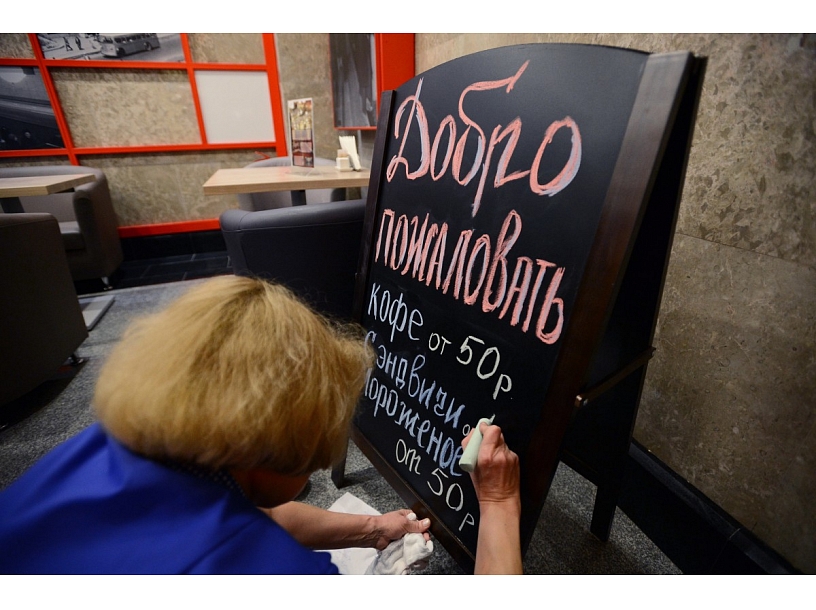 Добро
пожаловать
кофе от 50р
Сэндвичи о
Мороженое
от 50р